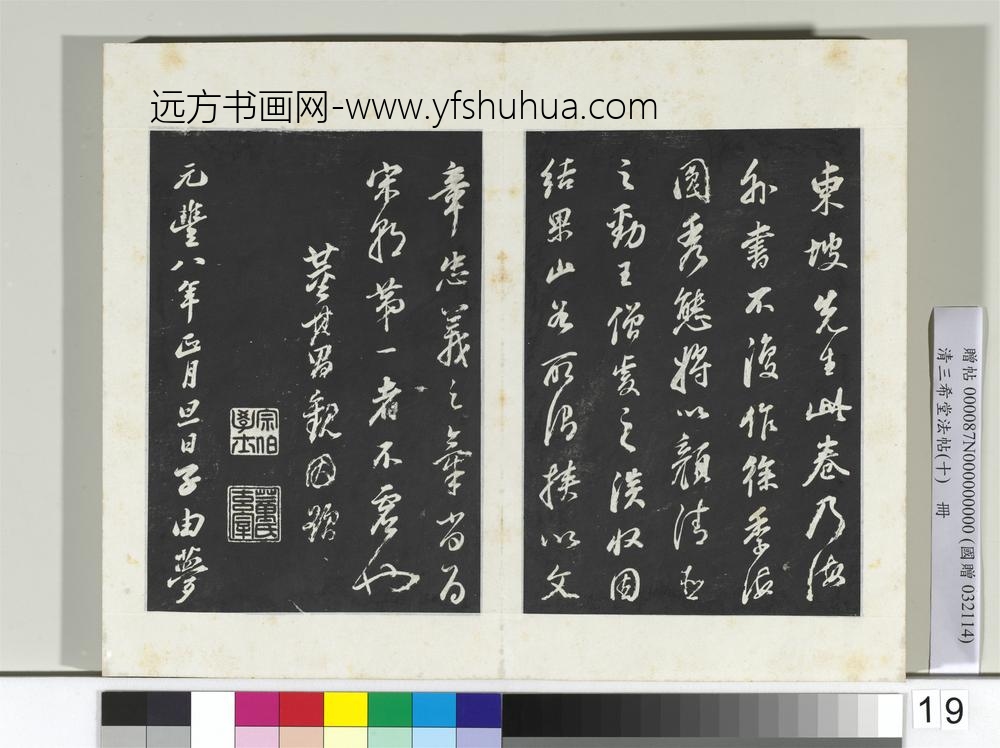 远方书画网-www.yfshuhua.com
東坡先生此卷乃海
外書不復作徐季海
圓秀態將以顏清臣
之勁王僧虔之淡收因
結果山谷所謂挾以文
章忠義之氣當為
宋朝第一者不虛也
董其昌觀因題
宗伯學士
董氏玄宰
元豐八年正月旦日子由夢
贈帖 000087N000000000 (國贈 032114)
清三希堂法帖(十) 冊
19